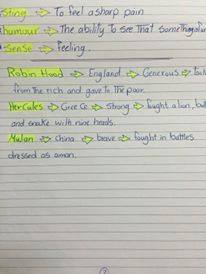 Sting => To feel a sharp pain
humour => The ability to see That something
Sense => Feeling.
Robin Hood => England => Generous =>
from the rich and gave to The poor.
Hercules => Greece => Strong => fought a lion, bull
and snake with nine heads.
Mulan => China => brave => fought in battles
dressed as aman.